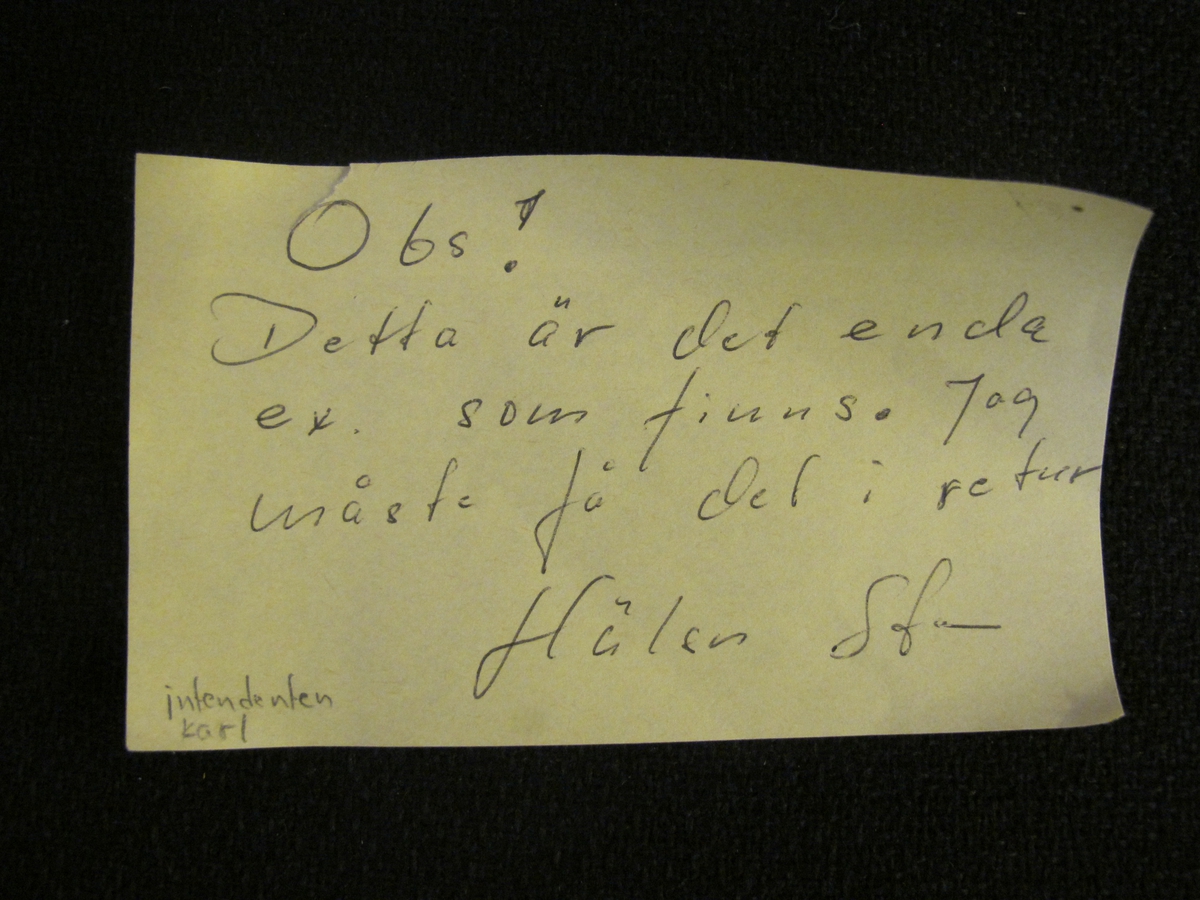 Obs!
Detta är det enda
ex. som finns. Jag
måste få det i retur
Hälsn
intendenten
karl